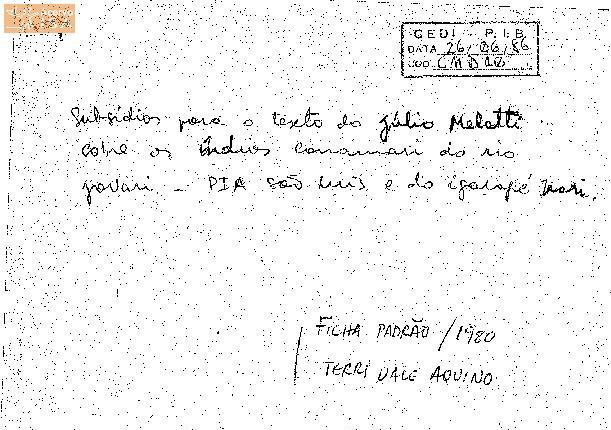 CEDI - P.I.B.
DATA 26/06/86
COD. CMD20
Subsídios para o texto do Júlio Melatti
sobre os índios canamari do rio
javari - PIA São Luís e do igarapé
FICHA PADRÃO / 1980
TERRI VALE AQUINO